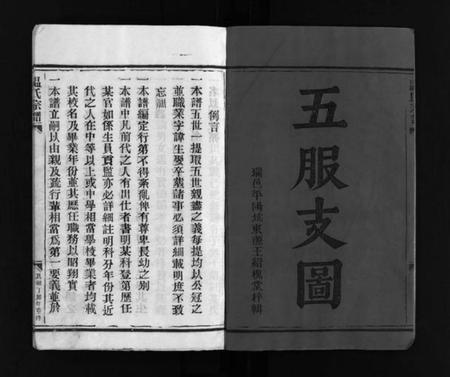 五服支圖
瑞邑平陽坑東源王紹槐堂梓輯
例言
一本譜五世一提取五世親盡之義每提均以公冠之
並職業字諱生娶卒塟諸事必須詳細載明庶不致
忘誤
一本譜編定行第不得紊亂俾有尊卑長幼之別
一本譜中凡前代之人有出仕者書明某科登第歷任
某官如係生員貢監亦必詳細註明科分年份其近
代之人在中等以上或中學相當學校畢業者均載
其校名及畢業年份並其歷任職務以昭翔實
一本譜立嗣以由親及疏行輩相當為第一要義並於
溫氏宗譜